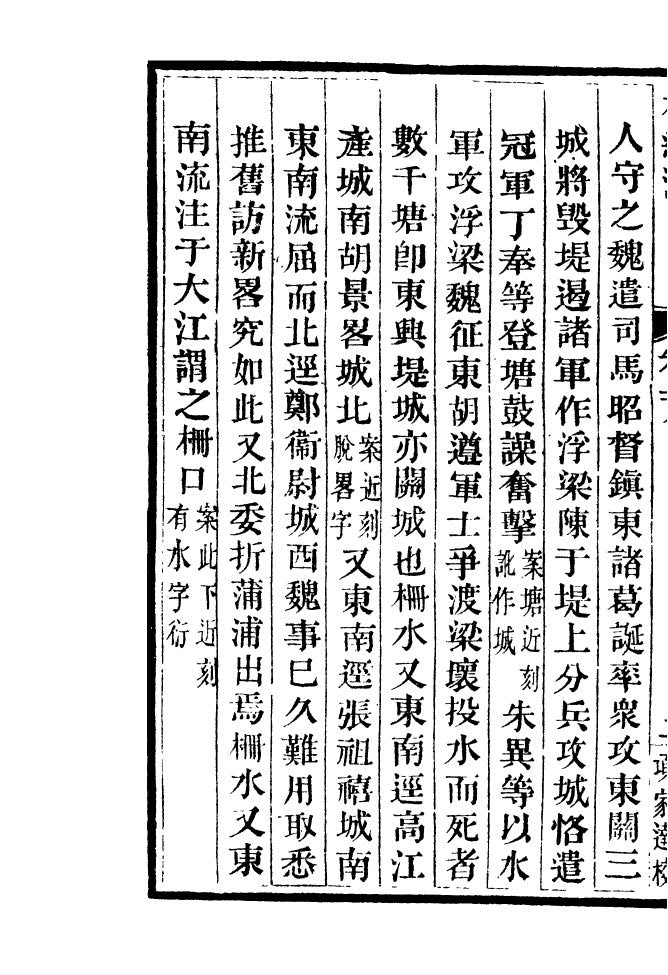 人守之魏遣司馬昭督鎮東諸葛誕率衆攻東關三
城將毀堤遏諸軍作浮梁陳于堤上分兵攻城恪遣
冠軍丁奉等登塘鼓譟奮擊案塘近刻訛作城朱異等以水
軍攻浮梁魏征東胡遵軍士爭渡梁壞投水而死者
數千塘卽東興堤城亦關城也柵水又東南逕高江
產城南胡景畧城北案近刻脫畧字又東南逕張祖禧城南
東南流屈而北逕鄭衞尉城西魏事已久難用取悉
推舊訪新畧究如此又北委折蒲浦出焉柵水又東
南流注于大江謂之柵口案此下近刻有水字衍